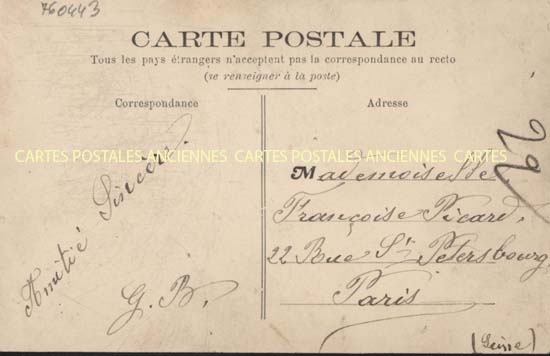 760443
CARTE POSTALE
Tous les pays étrangers n'acceptent pas la correspondance au recto
(se renseigner à la poste)
Correspondance
Amitié Sincère.
G. B.
Adresse
Mademoiselle
Françoise Picard,
22 Rue St Petersbourg
Paris
(Seine)
CARTES POSTALES ANCIENNES CARTES POSTALES ANCIENNES CARTES